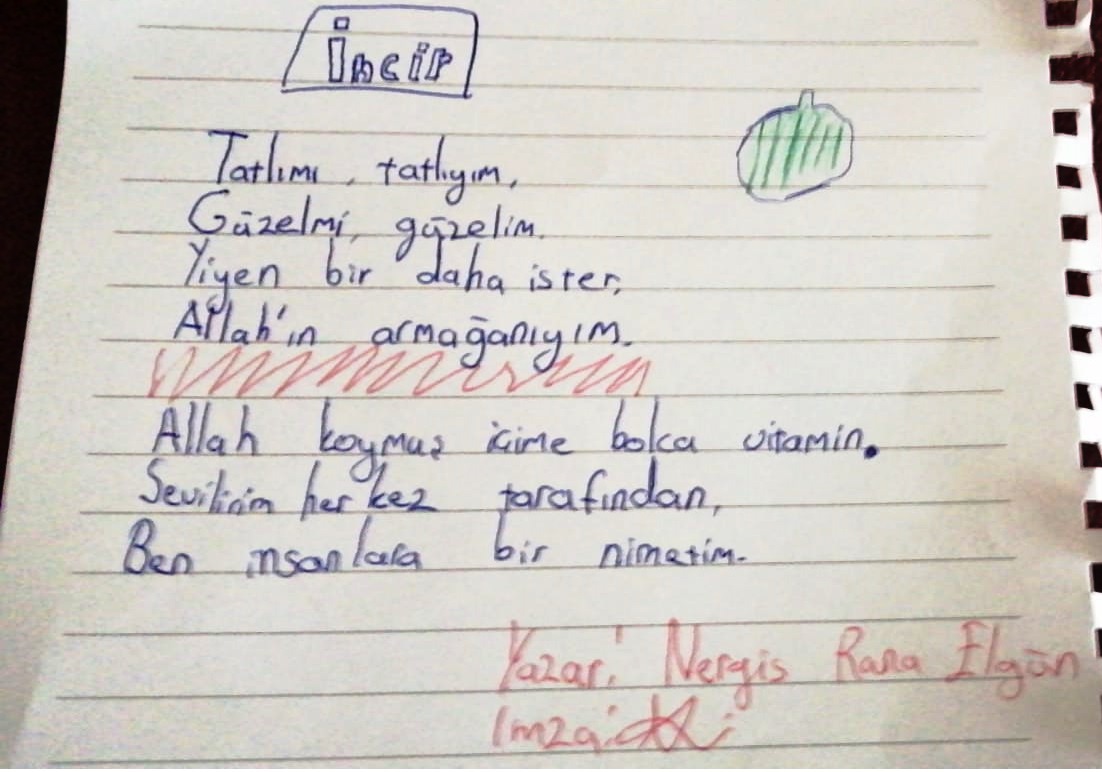 İncir
Tatlımı, tatlıyım,
Güzelmi, güzelim.
Yiyen bir daha ister,
Allah'ın armağanıyım.
Allah koymuş içime bolca vitamin.
Sevilirim herkez tarafından,
Ben insanlara bir nimetim.
Yazar: Nergis Rana Elgün
İmza: